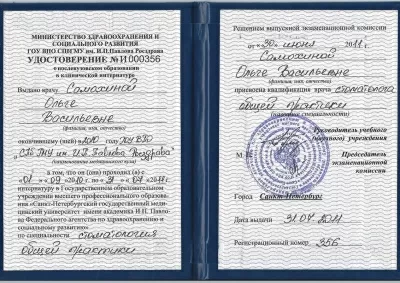 МИНИСТЕРСТВО ЗДРАВООХРАНЕНИЯ И
СОЦИАЛЬНОГО РАЗВИТИЯ
ГОУ ВПО СПбГМУ им. И.П.Павлова Росздрава
УДОСТОВЕРЕНИЕ №И000356
о послевузовском образовании
в клинической интернатуре
Выдано врачу Самохиной
Ольге
Васильевне
(фамилия, имя, отчество)
окончившему (шей) в 2010 году ГОУ ВПО
"СПб ГМУ им. И.П. Павлова Росздрава"
в том, что он (она) проходил (а) с
«01» 09 2010 г. по «31» 07 2011 г.
интернатуру в Государственном образовательном
учреждении высшего профессионального образова-
ния «Санкт-Петербургский государственный меди-
цинский университет имени академика И.П. Павло-
ва Федерального агентства по здравоохранению и
социальному развитию»
по специальности стоматология
общей практики
Решением выпускной экзаменационной комиссии
от «30» июня 2011 г.
Самохиной
Ольге Васильевне
(фамилия, имя, отчество)
присвоена квалификация врача стоматолога
общей практики
(название специальности)
Руководитель учебного
(научного) учреждения
М.П.
Председатель
экзаменационной
комиссии
Город Санкт-Петербург
Дата выдачи 31.07.2011
Регистрационный номер 356